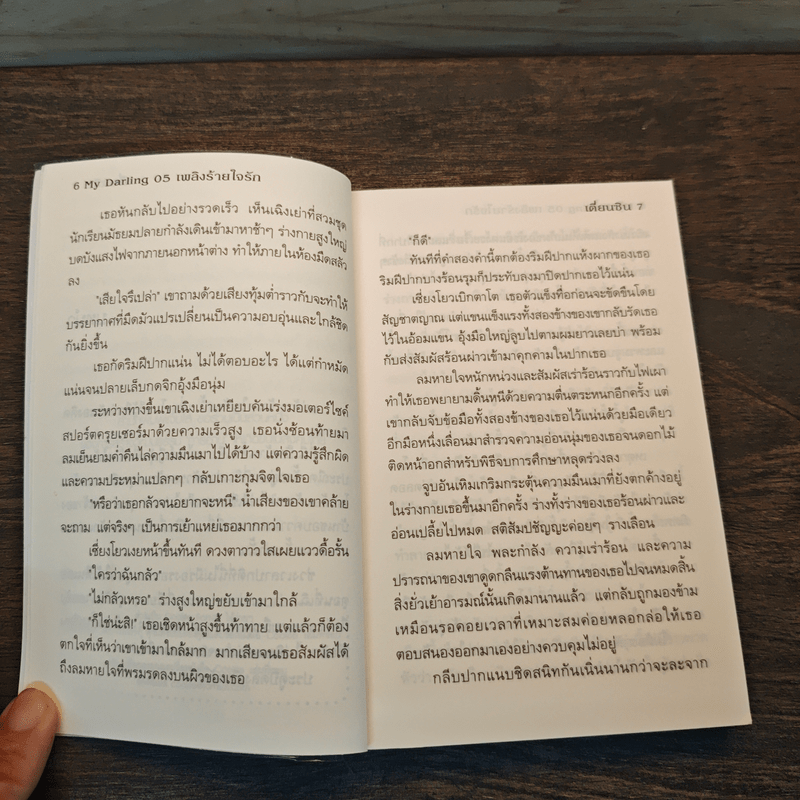 6 My Darling 05 เพลิงร้ายใจรัก
เธอหันกลับไปอย่างรวดเร็ว เห็นเฉิงเย่าที่สวมชุด
นักเรียนมัธยมปลายกำลังเดินเข้ามาหาช้าๆ ร่างกายสูงใหญ่
บดบังแสงไฟจากภายนอกหน้าต่าง ทำให้ภายในห้องมืดสลัว
ลง
"เสียใจรึเปล่า" เขาถามด้วยเสียงทุ้มต่ำราวกับจะทำให้
บรรยากาศที่มืดมัวแปรเปลี่ยนเป็นความอบอุ่นและใกล้ชิด
กันยิ่งขึ้น
เธอกัดริมฝีปากแน่น ไม่ได้ตอบอะไร ได้แต่กำหมัด
แน่นจนปลายเล็บกดจิกอุ้งมือนุ่ม
ระหว่างทางขึ้นเขาเฉิงเย่าเหยียบคันเร่งมอเตอร์ไซค์
สปอร์ตครุยเซอร์มาด้วยความเร็วสูง เธอนั่งซ้อนท้ายมา
ลมเย็นยามค่ำคืนไล่ความมึนเมาไปได้บ้าง แต่ความรู้สึกผิด
และความประหม่าแปลกๆ กลับเกาะกุมจิตใจเธอ
"หรือว่าเธอกลัวจนอยากจะหนี" น้ำเสียงของเขาคล้าย
จะถาม แต่จริงๆ เป็นการเย้าแหย่เธอมากกว่า
เซี่ยงโยวเงยหน้าขึ้นทันที ดวงตาวาวใสเผยแววดื้อรั้น
"ใครว่าฉันกลัว"
"ไม่กลัวเหรอ" ร่างสูงใหญ่ขยับเข้ามาใกล้
"ก็ใช่น่ะสิ!" เธอเชิดหน้าสูงขึ้นท้าทาย แต่แล้วก็ต้อง
ตกใจที่เห็นว่าเขาเข้ามาใกล้มาก มากเสียจนเธอสัมผัสได้
ถึงลมหายใจที่พรมรดลงบนผิวของเธอ
เตี่ยนซิน 7
"ก็ดี"
ทันทีที่คำสองคำนี้ตกต้องริมฝีปากแห้งผากของเธอ
ริมฝีปากบางร้อนรุมก็ประทับลงมาปิดปากเธอไว้แน่น
เซี่ยงโยวเบิกตาโต เธอตัวแข็งทื่อก่อนจะขัดขืนโดย
สัญชาตญาณ แต่แขนแข็งแรงทั้งสองข้างของเขากลับรัดเธอ
ไว้ในอ้อมแขน อุ้งมือใหญ่ลูบไปตามผมยาวเลยบ่า พร้อม
กับส่งสัมผัสร้อนผ่าวเข้ามาคุกคามในปากเธอ
ลมหายใจหนักหน่วงและสัมผัสเร่าร้อนราวกับไฟเผา
ทำให้เธอพยายามดิ้นหนีด้วยความตื่นตระหนกอีกครั้ง แต่
เขากลับจับข้อมือทั้งสองข้างของเธอไว้แน่นด้วยมือเดียว
อีกมือหนึ่งเลื่อนมาสำรวจความอ่อนนุ่มของเธอจนดอกไม้
ติดหน้าอกสำหรับพิธีจบการศึกษาหลุดร่วงลง
จูบอันเหิมเกริมกระตุ้นความมึนเมาที่ยังตกค้างอยู่
ในร่างกายเธอขึ้นมาอีกครั้ง ร่างทั้งร่างของเธอร้อนผ่าวและ
อ่อนเปลี้ยไปหมด สติสัมปชัญญะค่อยๆ รางเลือน
ลมหายใจ พละกำลัง ความเร่าร้อน และความ
ปรารถนาของเขาดูดกลืนแรงต้านทานของเธอไปจนหมดสิ้น
สิ่งยั่วเย้าอารมณ์นั้นเกิดมานานแล้ว แต่กลับถูกมองข้าม
เหมือนรอคอยเวลาที่เหมาะสมค่อยหลอกล่อให้เธอ
ตอบสนองออกมาเองอย่างควบคุมไม่อยู่
กลีบปากแนบชิดสนิทกันเนิ่นนานกว่าจะละจาก